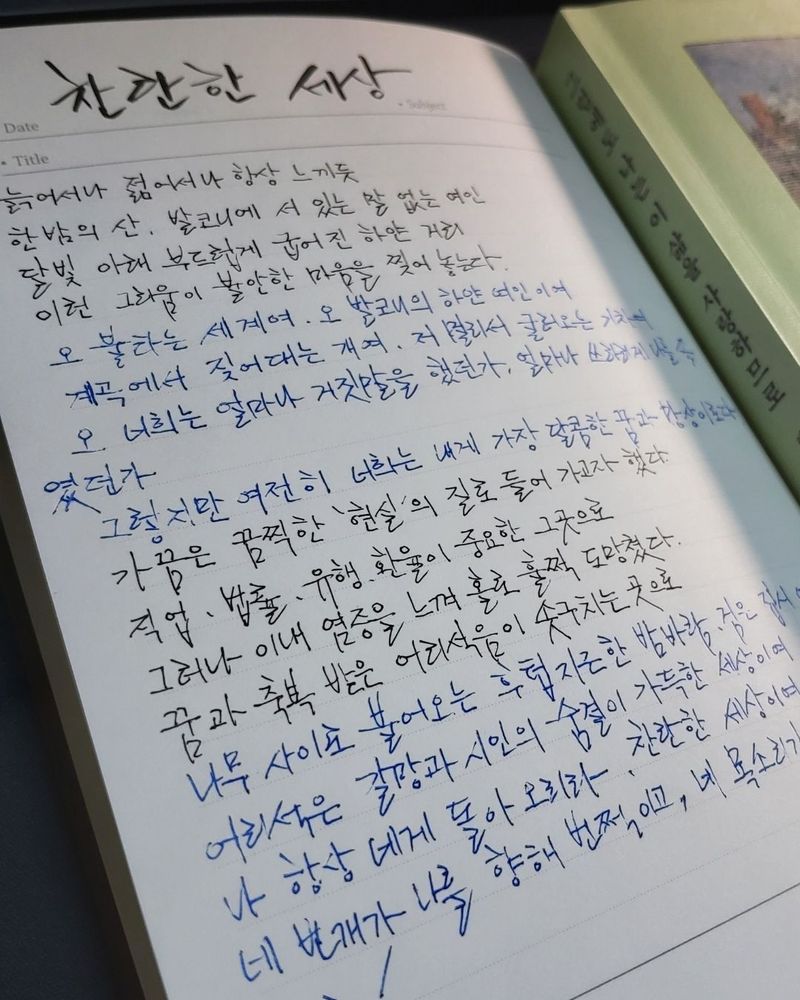 찬란한 세상
Date
• Subject
• Title
늙어서나 젊어서나 항상 느끼듯
한밤의 산. 발코니에 서 있는 말 없는 여인
달빛 아래 부드럽게 굽어진 하얀 거리
이런 그리움이 불안한 마음을 찢어 놓는다.
오 불타는 세계여. 오 발코니의 하얀 여인이여
계곡에서 짖어대는 개여. 저 멀리서 굴러오는 기차여
오. 너희는 얼마나 거짓말을 했던가. 얼마나 쓰라리게 나를 속
였던가
그렇지만 여전히 너희는 내게 가장 달콤한 꿈과 환상이로다
가끔은 끔찍한 '현실'의 길로 들어 가고자 했다.
직업. 법률. 유행. 환율이 중요한 그곳으로
그러나 이내 염증을 느껴 홀로 훌쩍 도망쳤다.
꿈과 축복 받은 어리석음이 솟구치는 곳으로
나무 사이로 불어오는 후텁지근한 밤바람. 검은 집시
어리석은 갈망과 시인의 숨결이 가득한 세상이여
나 항상 네게 돌아 오리라. 찬란한 세상이여
네 번개가 나를 향해 번쩍이고, 네 목소리가
삶을 사랑하므로